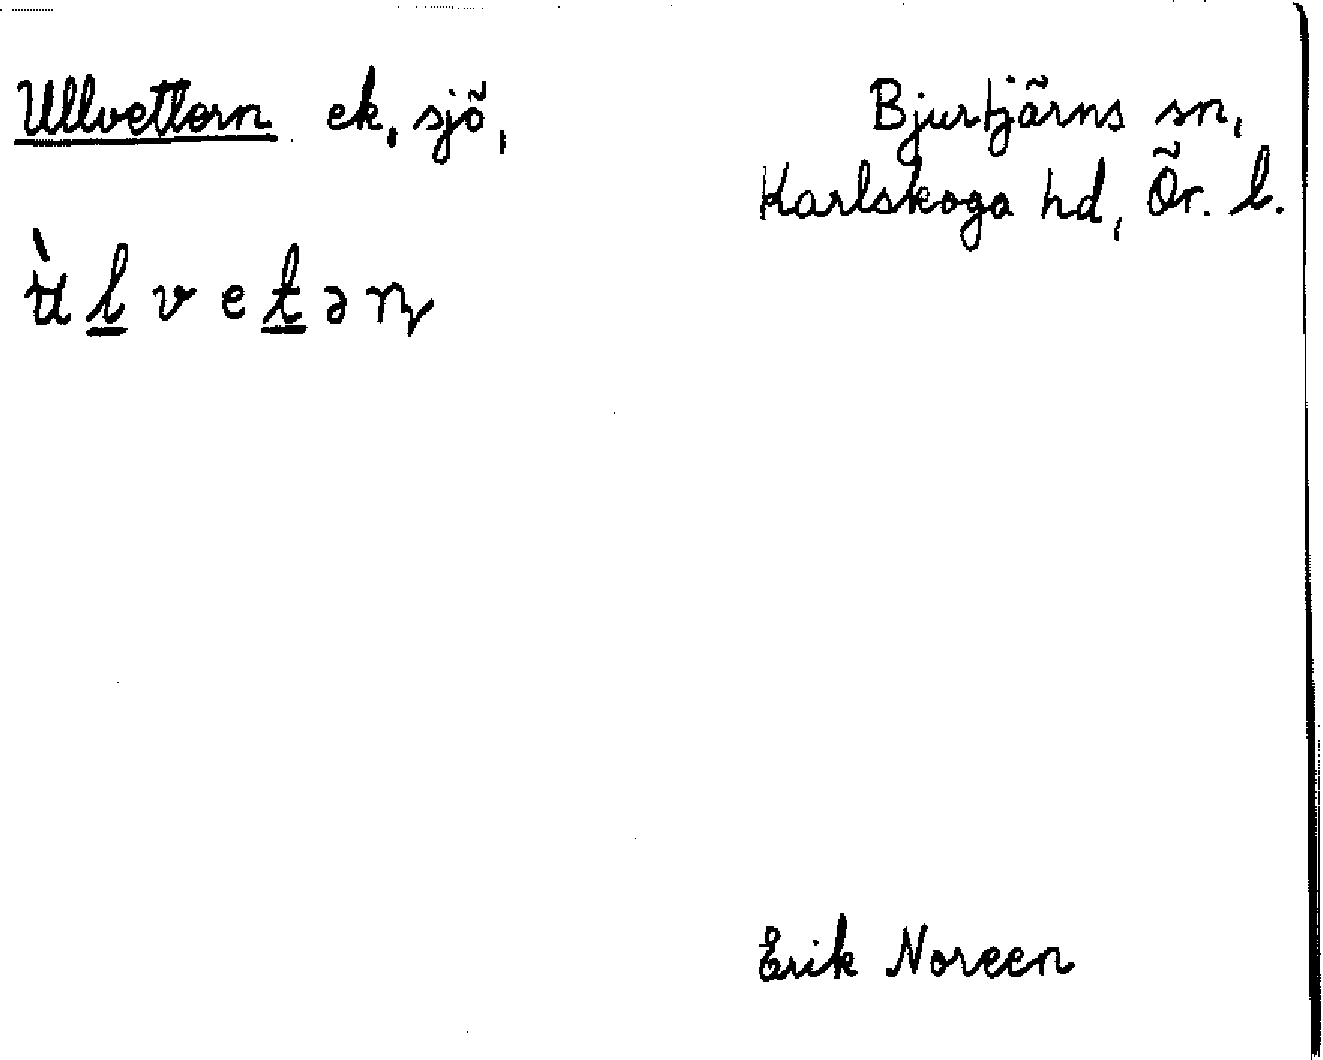 Ullvettern ek, sjö,
Bjurtjärns sn,
Karlskoga hd, Ör. l.
ʉ̀l̲vet̲əɳ
Erik Noreen